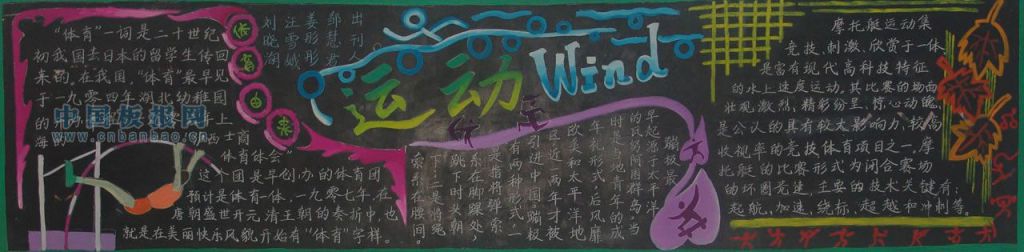 “体育”一词是二十世纪
初我国去日本的留学生传回
来的,在我国,“体育”最早见
于一九〇四年湖北幼稚园
的
上
海
士商
体育体会”
这个团是早创办的体育团
预计是体育一体,一九〇七年,在
唐朝盛世开元清王朝的奏折中,也
就是在美丽快乐风貌,开始有“体育”字样。
中国板报网
www.cnbanbao.cn
体育由来
出刊
邹慧君
姜彤彤
汪雪娥
刘晓闲
运动Wind
蹦极
蹦极最
早起源于太平洋
年礼形式,后风靡
欧美和太平洋地
区,近两年才被
引进中国,蹦极
有两种形式,一
是指将弹索
系在脚踝处,
跳下时头朝
下,二是将绳
索系在腰间。
摩托艇运动集
竞技、刺激、欣赏于一体,
是富有现代高科技特征
的水上速度运动,其比赛的场面
壮观、激烈,精彩纷呈,惊心动魄,
是公认的具有较大影响力、较高
收视率的竞技体育项目之一,摩
托艇的比赛形式为闭合赛场
的环圈竞速,主要的技术关键有:
起航、加速、绕标、超越和冲刺等。